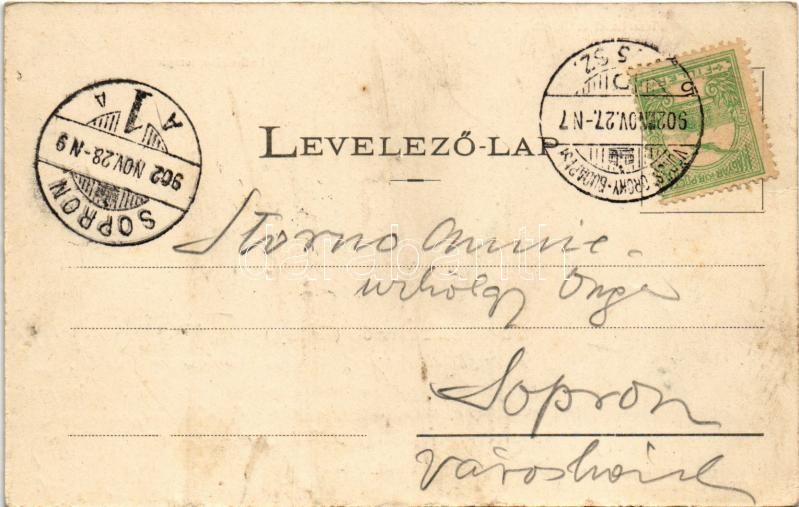 SOPRON
902 NOV. 28.-N 9
A 1 A
902 NOV. 27.-N 7
5 SZ.
MAGYAR KIR. POSTA
LEVELEZŐ-LAP
darabanth
Storno Annie.
úrhölgy
Sopron
városház